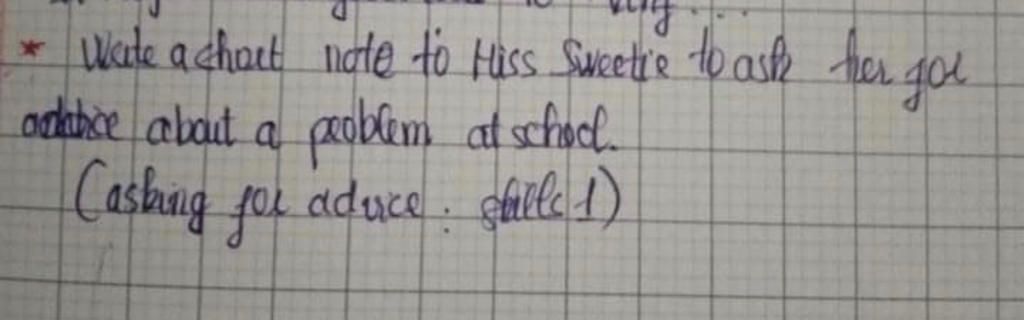 * Write a short note to Miss Sweetie to ask her for
advice about a problem at school.
(asking for advice : skills 1)